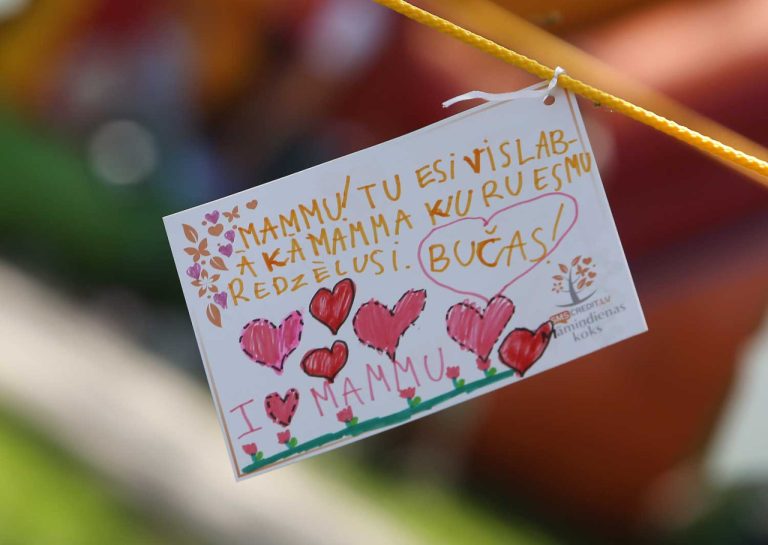 MAMMU! TU ESI VISLAB-
ĀKĀ MAMMA KURU ESMU
REDZĒLUSI. BUČAS!
SMSCREDIT.LV
Māmiņdienas
koks
I MAMMU